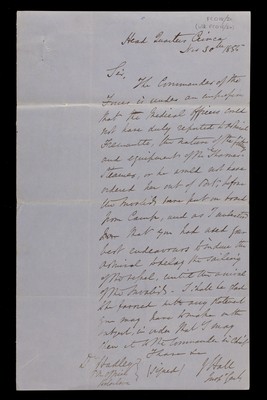 Head Quarters Crimea
Nov 30th 1855
Sir,
The Commander of the
Forces is under an impression
that the Medical Officers could
not have duly reported to Admiral
Freemantle, the nature of the
and equipment of the Thames
Steamer, or he would not have
ordered her out of Port, before
the Invalids have put on board
from Camp, and as I understand
from that you had used your
best endeavours to induce the
Admiral to delay the sailing
of the vessel, until the arrival
of the Invalids. I shall be glad
to be favored with any
you may have to make on the
subject, in order that I may
it to the Commander in Chief
I have &c
(Signed) J Hall
Dr Hadley